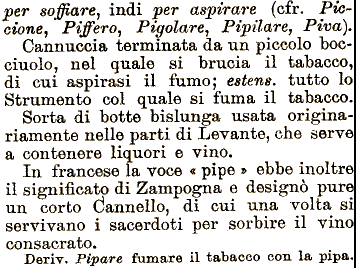 per soffiare, indi per aspirare (cfr. Pic-
cione, Piffero, Pigolare, Pipilare, Piva).
Cannuccia terminata da un piccolo boc-
ciuolo, nel quale si brucia il tabacco,
di cui aspirasi il fumo; estens. tutto lo
Strumento col quale si fuma il tabacco.
Sorta di botte bislunga usata origina-
riamente nelle parti di Levante, che serve
a contenere liquori e vino.
In francese la voce « pipe » ebbe inoltre
il significato di Zampogna e designò pure
un corto Cannello, di cui una volta si
servivano i sacerdoti per sorbire il vino
consacrato.
Deriv. Pipare fumare il tabacco con la pipa.